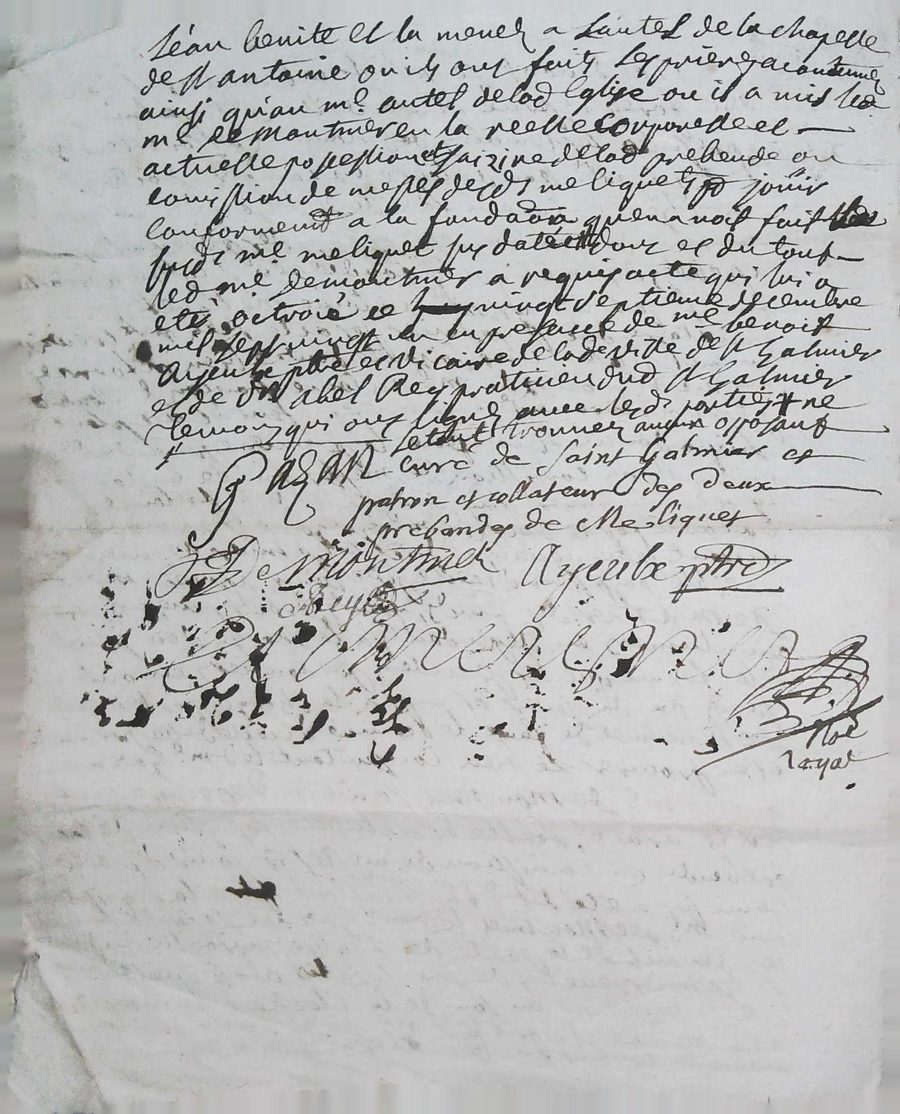 léau benite et la mener a Lautel de la chapelle
de st antoine ou ils ont faits les prieres acoutumées
ainsi quau me autel de lad Eglise ou il a mis led
me demontmer en la reelle corporelle et
actuelle possession et saizine de lad prebende ou
comission de messes desds me liquet pr jouir
conformemt a la fondaõn quen a voit fait
me meliquet sus datée dont et du tout
led me demontmer a requis acte qui lui a
eté octroié ce vingt septieme decembre
mil sept vingt un en presance de me benoit
Ayeulx ptre et vicaire de lade ville de st Galmier
et de abel Rey praticien dud st Galmier
temoins qui ont signé avec lesds parties ne
setant trouver aucun oposant
GAZAN curé de Saint Galmier et
patron et collateur des deux
prebandes de Mesliquet
Demontmer Ayeulx ptre
Rey
Noe
Royal